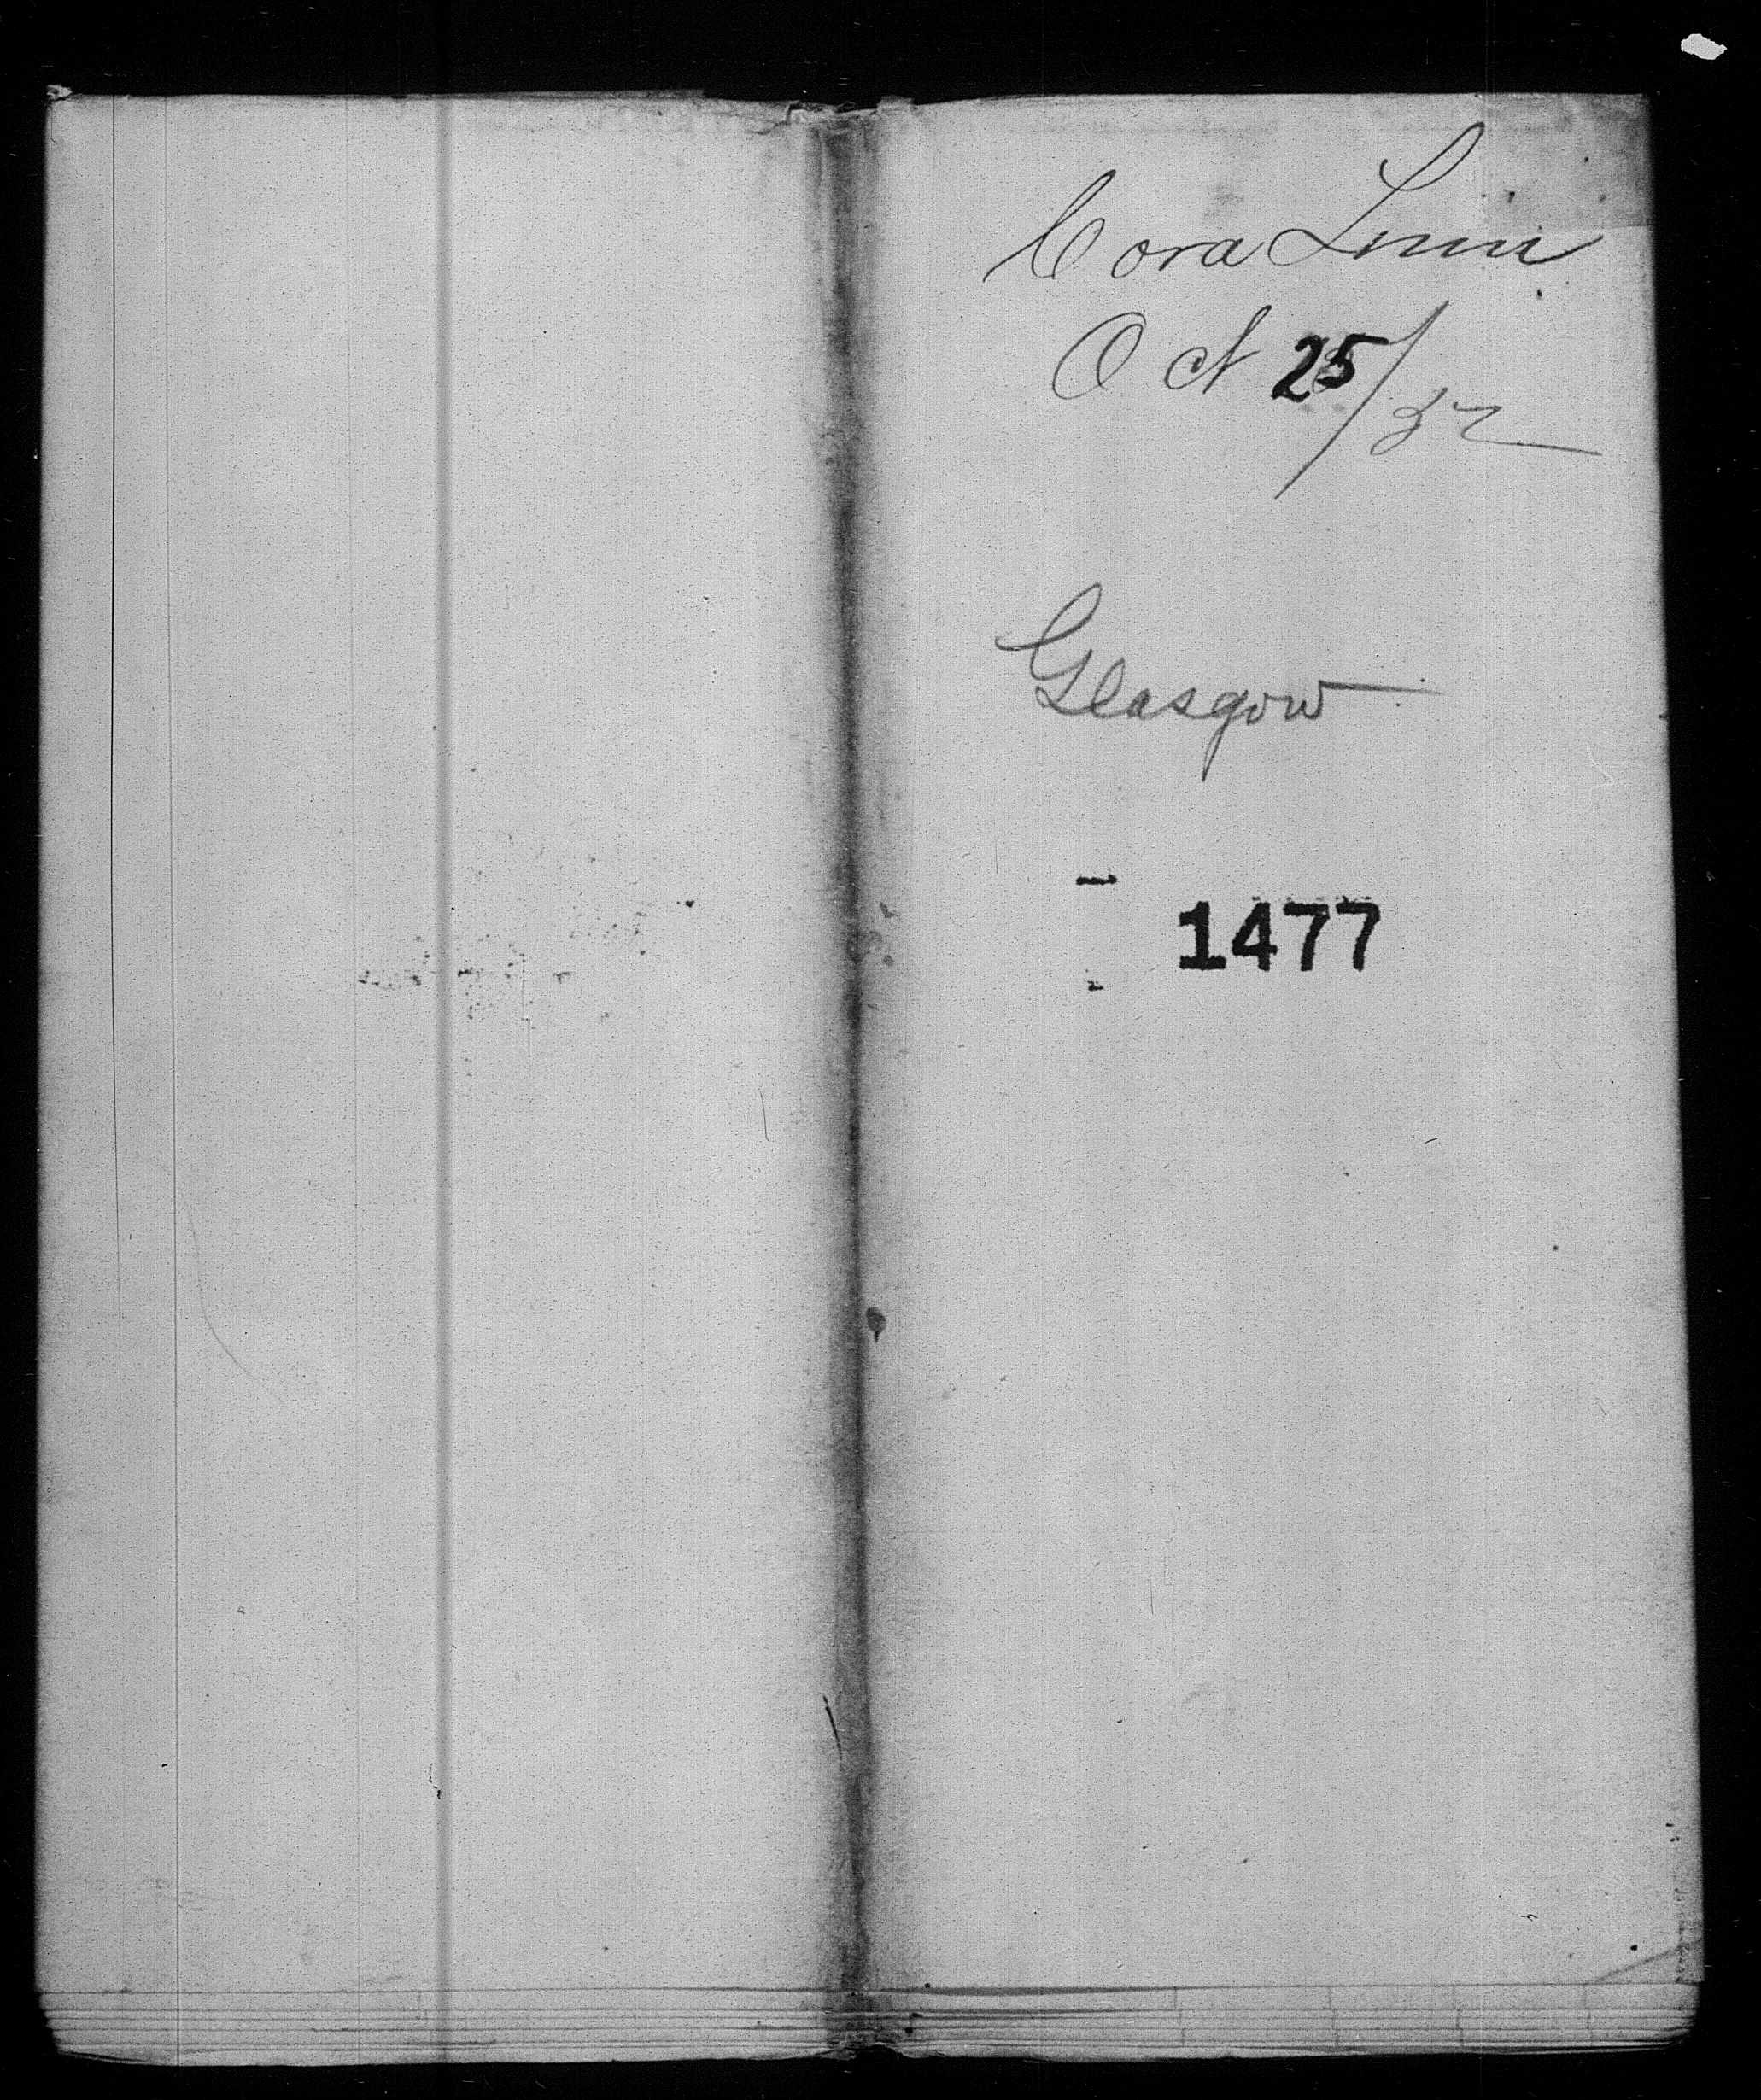 Cora Linn
Oct 25/82
Glasgow
1477